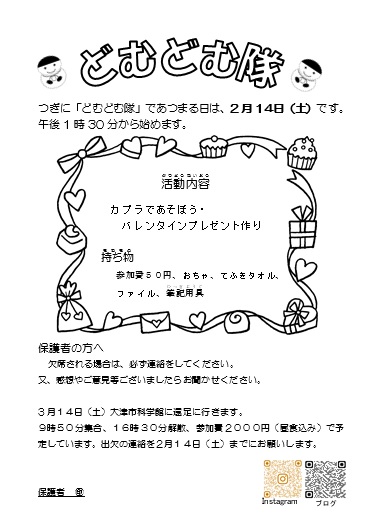 どむどむ隊
つぎに「どむどむ隊」であつまる日は、2月14日（土）です。
午後1時30分から始めます。
活動内容
カプラであそぼう・
バレンタインプレゼント作り
持ち物
参加費50円、おちゃ、てふきタオル、
ファイル、筆記用具
保護者の方へ
欠席される場合は、必ず連絡をしてください。
又、感想やご意見等ございましたらお聞かせください。
3月14日（土）大津市科学館に遠足に行きます。
9時50分集合、16時30分解散、参加費2000円（昼食込み）で予
定しています。出欠の連絡を2月14日（土）までにお願いします。
保護者　㊞
Instagram
ブログ